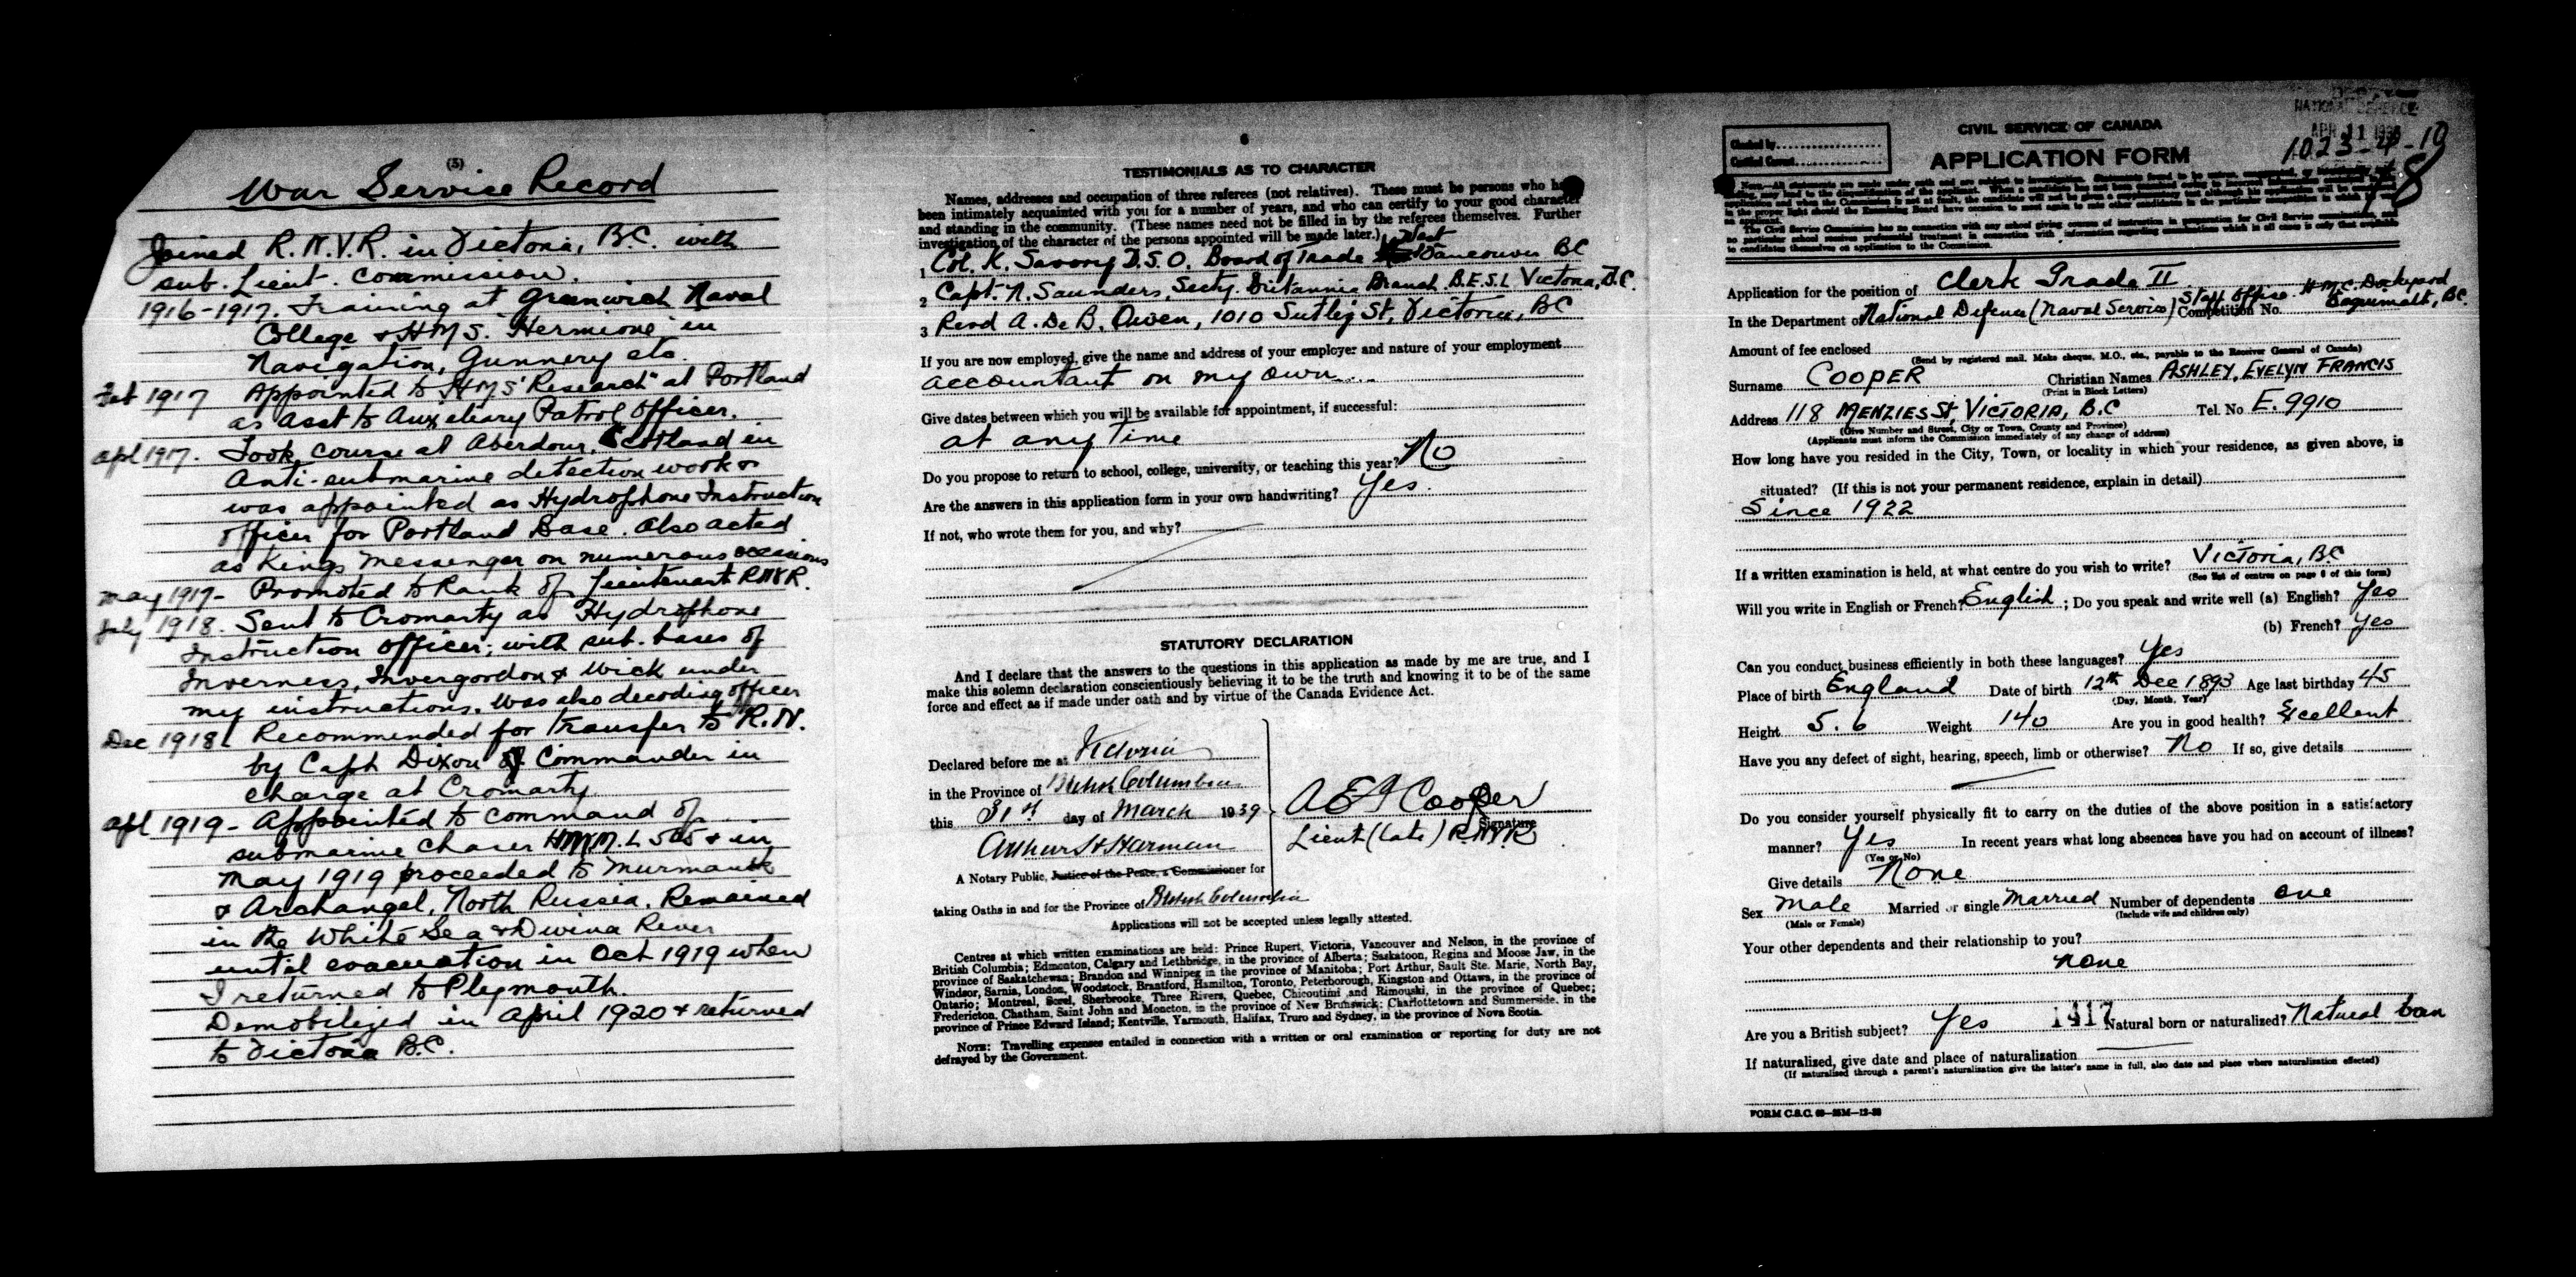 (3)
War Service Record
Joined R.N.V.R. in Victoria, B.C. with
sub. Lieut. Commission.
1916-1917. Training at Greenwich Naval
College & HMS "Hermione" in
Navigation, Gunnery etc.
Feb 1917 Appointed to HMS "Research" at Portland
as Asst to Auxiliary Patrol officer.
Apl 1917. Took course at Aberdour, Scotland in
Anti-submarine detection work &
was appointed as Hydrophone Instruction
officer for Portland Base. Also acted
as Kings Messenger on numerous occasions
May 1917- Promoted to Rank of Lieutenant RNVR.
July 1918. Sent to Cromarty as Hydrophone
Instruction officer; with sub. bases of
Inverness, Invergordon & Wick under
my instructions. Was also decoding officer
Dec 1918. Recommended for transfer to R.N.
by Capt Dixon Commander in
charge at Cromarty
Apl 1919- Appointed to command of
submarine chaser HMM.L 505 & in
May 1919 proceeded to Murmansk
& Archangel, North Russia. Remained
in the White Sea & Dwina River
until evacuation in Oct 1919 when
I returned to Plymouth.
Demobilized in April 1920 & returned
to Victoria B.C.
6
TESTIMONIALS AS TO CHARACTER
Names, addresses and occupation of three referees (not relatives). These must be persons who have
been intimately acquainted with you for a number of years, and who can certify to your good character
and standing in the community. (These names need not be filled in by the referees themselves. Further
investigation of the character of the persons appointed will be made later.)
1 Col. K. Savory D.S.O. Board of Trade West Vancouver BC
2 Capt. N. Saunders, Secty. Britannia Branch B.E.S.L Victoria, B.C.
3 Revd A. De B. Owen, 1010 Sutlej St, Victoria, BC
If you are now employed, give the name and address of your employer and nature of your employment
accountant on my own
Give dates between which you will be available for appointment, if successful:
at any time
Do you propose to return to school, college, university, or teaching this year? No
Are the answers in this application form in your own handwriting? Yes.
If not, who wrote them for you, and why?
STATUTORY DECLARATION
And I declare that the answers to the questions in this application as made by me are true, and I
make this solemn declaration conscientiously believing it to be the truth and knowing it to be of the same
force and effect as if made under oath and by virtue of the Canada Evidence Act.
Declared before me at Victoria
in the Province of British Columbia
this 31st day of March 1939
A E F Cooper
Signature
Lieut (late) R.N.V.R
Arthur H Harman
A Notary Public, Justice of the Peace, a Commissioner for
taking Oaths in and for the Province of British Columbia
Applications will not be accepted unless legally attested.
Centres at which written examinations are held: Prince Rupert, Victoria, Vancouver and Nelson, in the province of
British Columbia; Edmonton, Calgary and Lethbridge, in the province of Alberta; Saskatoon, Regina and Moose Jaw, in the
province of Saskatchewan; Brandon and Winnipeg in the province of Manitoba; Port Arthur, Sault Ste. Marie, North Bay,
Windsor, Sarnia, London, Woodstock, Brantford, Hamilton, Toronto, Peterborough, Kingston and Ottawa, in the province of
Ontario; Montreal, Sorel, Sherbrooke, Three Rivers, Quebec, Chicoutimi and Rimouski, in the province of Quebec;
Fredericton, Chatham, Saint John and Moncton, in the province of New Brunswick; Charlottetown and Summerside, in the
province of Prince Edward Island; Kentville, Yarmouth, Halifax, Truro and Sydney, in the province of Nova Scotia.
NOTE: Travelling expenses entailed in connection with a written or oral examination or reporting for duty are not
defrayed by the Government.
Checked by
Certified Correct
CIVIL SERVICE OF CANADA
APPLICATION FORM
APR 11
1023-4-10
78
The Civil Service Commission has no connection with any school giving courses of instruction in preparation for Civil Service examinations, and
no particular school receives preferential treatment in connection with information regarding examinations which in all cases is only that available
to candidates themselves on application to the Commission.
Application for the position of Clerk Grade II
In the Department of National Defence (Naval Service) Competition No. Staff Office. H.M.C. Dockyard
Esquimalt, BC.
Amount of fee enclosed
(Send by registered mail. Make cheque, M.O., etc., payable to the Receiver General of Canada)
Surname COOPER Christian Names ASHLEY, EVELYN FRANCIS
(Print in Block Letters)
Address 118 MENZIES St, VICTORIA, B.C Tel. No E. 9910
(Give Number and Street, City or Town, County and Province)
(Applicants must inform the Commission immediately of any change of address)
How long have you resided in the City, Town, or locality in which your residence, as given above, is
situated? (If this is not your permanent residence, explain in detail)
Since 1922
If a written examination is held, at what centre do you wish to write? Victoria, BC
(See list of centres on page 6 of this form)
Will you write in English or French? English; Do you speak and write well (a) English? Yes
(b) French? Yes
Can you conduct business efficiently in both these languages? Yes
Place of birth England Date of birth 12th Dec 1893 Age last birthday 45
(Day, Month, Year)
Height 5. 6 Weight 140 Are you in good health? Excellent
Have you any defect of sight, hearing, speech, limb or otherwise? No If so, give details
Do you consider yourself physically fit to carry on the duties of the above position in a satisfactory
manner? Yes In recent years what long absences have you had on account of illness?
(Yes or No)
Give details None
Sex Male Married or single Married Number of dependents one
(Male or Female) (Include wife and children only)
Your other dependents and their relationship to you?
none
Are you a British subject? Yes 1417 Natural born or naturalized? Natural born
If naturalized, give date and place of naturalization
(If naturalized through a parent's naturalization give the latter's name in full, also date and place where naturalization effected)